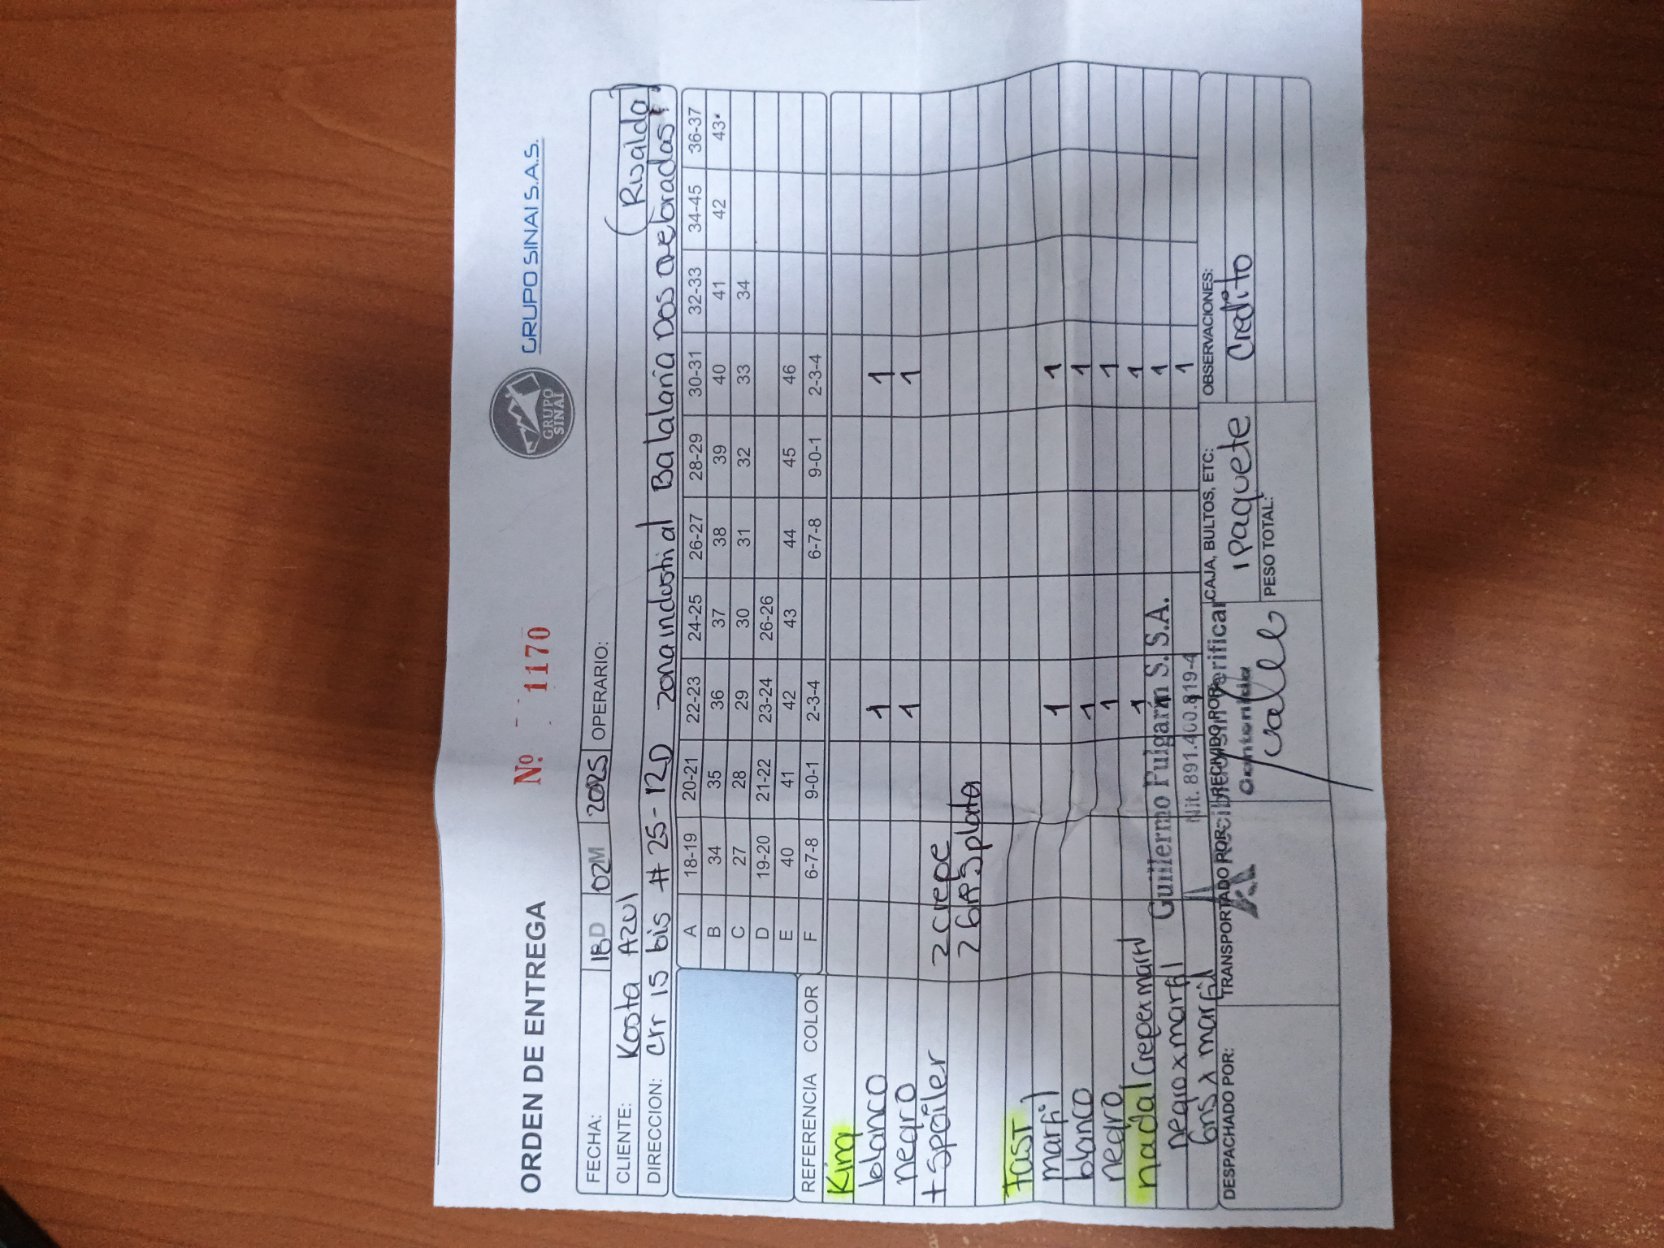 ORDEN DE ENTREGA Nº 1170
GRUPO SINAI
GRUPO SINAI S.A.S.
FECHA: 18 D 02 M 2025 OPERARIO:
CLIENTE: Kosta Azul (Rivaldo)
DIRECCION: crr 15 bis # 25-12D zona industrial Balalaria Dos quebradas!
A 18-19 20-21 22-23 24-25 26-27 28-29 30-31 32-33 34-45 36-37
B 34 35 36 37 38 39 40 41 42 43*
C 27 28 29 30 31 32 33 34
D 19-20 21-22 23-24 26-26
E 40 41 42 43 44 45 46
REFERENCIA COLOR F 6-7-8 9-0-1 2-3-4 6-7-8 9-0-1 2-3-4
King
blanco 1 1
negro 1 1
+ spoiler 2 crepe
2 gris plata
Fast
marfil 1 1
blanco 1 1
negro 1 1
nadal crepe x marfil 1 1
negro x marfil 1
gris x marfil 1
Guillermo Pulgarin S. S.A.
Nit. 891.400.819-4
Recibido sin Verificar
Contenido
DESPACHADO POR: TRANSPORTADO POR: RECIVIDO POR: CAJA, BULTOS, ETC: OBSERVACIONES:
1 Paquete Credito
PESO TOTAL: